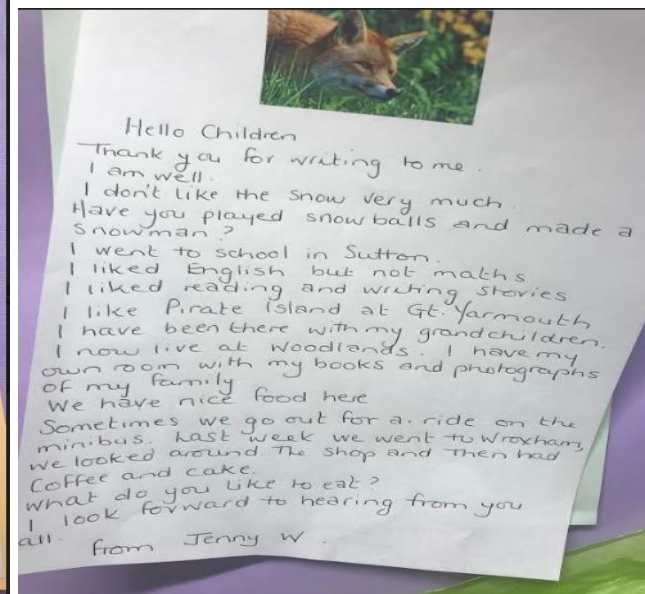 Hello Children
Thank you for writing to me.
I am well.
I don't like the snow very much.
Have you played snowballs and made a
snowman?
I went to school in Sutton.
I liked English but not maths
I liked reading and writing stories
I like Pirate Island at Gt. Yarmouth
I have been there with my grandchildren.
I now live at Woodlands. I have my
own room with my books and photographs
of my family
We have nice food here
Sometimes we go out for a ride on the
minibus. Last week we went to Wroxham,
we looked around the shop and then had
Coffee and cake.
What do you like to eat?
I look forward to hearing from you
all.
from Jenny W.